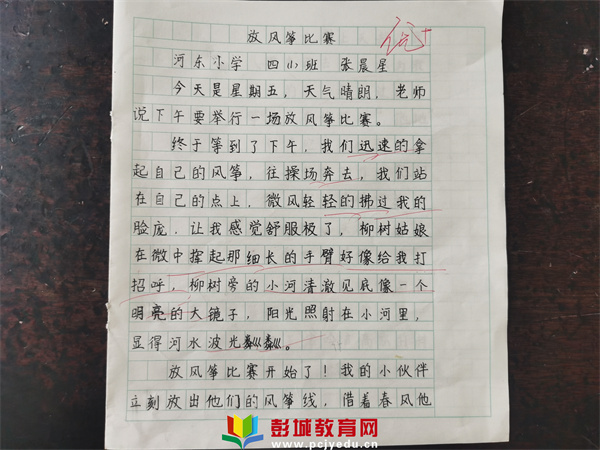 放风筝比赛
优+
河东小学 四(1)班 张晨星
今天是星期五，天气晴朗，老师
说下午要举行一场放风筝比赛。
终于等到了下午，我们迅速的拿
起自己的风筝，往操场奔去，我们站
在自己的点上，微风轻轻的拂过我的
脸庞，让我感觉舒服极了，柳树姑娘
在微中挥起那细长的手臂好像给我打
招呼，柳树旁的小河清澈见底像一个
明亮的大镜子，阳光照射在小河里，
显得河水波光粼粼。
放风筝比赛开始了！我的小伙伴
立刻放出他们的风筝线，借着春风他
彭城教育网
www.pcjyedu.cn